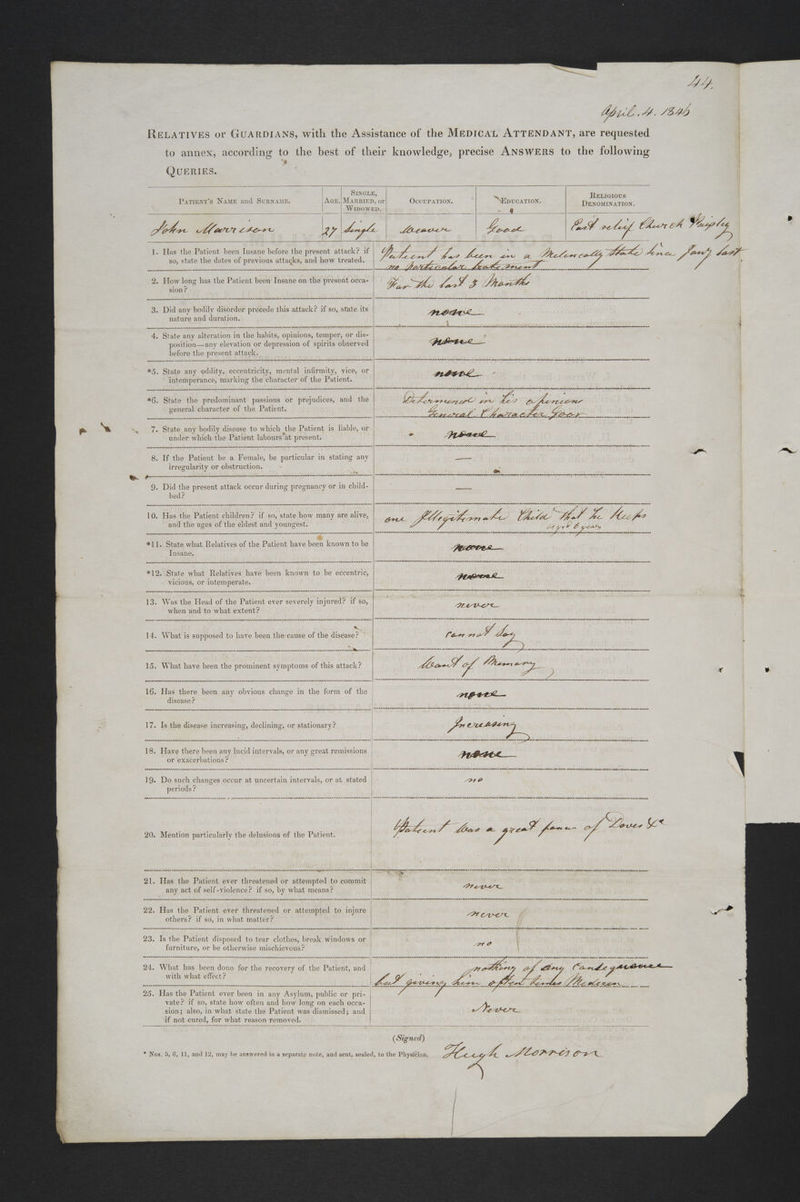 44.
April. 4. 1846
RELATIVES or GUARDIANS, with the Assistance of the MEDICAL ATTENDANT, are requested
to annex, according to the best of their knowledge, precise ANSWERS to the following
QUERIES.
PATIENT'S NAME and SURNAME. AGE. SINGLE, MARRIED, or WIDOWED. OCCUPATION. EDUCATION. RELIGIOUS DENOMINATION.
John Morrison 27 Single Weaver Good East relief Church Paisley
1. Has the Patient been Insane before the present attack? if
so, state the dates of previous attacks, and how treated.
Patient has been in a Melincally State Since Jany last
no particular
2. How long has the Patient been Insane on the present occa-
sion?
For the last 3 Months
3. Did any bodily disorder precede this attack? if so, state its
nature and duration.
none
4. State any alteration in the habits, opinions, temper, or dis-
position—any elevation or depression of spirits observed
before the present attack.
none
*5. State any oddity, eccentricity, mental infirmity, vice, or
intemperance, marking the character of the Patient.
none
*6. State the predominant passions or prejudices, and the
general character of the Patient.
in his
General Character Good
7. State any bodily disease to which the Patient is liable, or
under which the Patient labours at present.
none
8. If the Patient be a Female, be particular in stating any
irregularity or obstruction.
—
9. Did the present attack occur during pregnancy or in child-
bed?
—
10. Has the Patient children? if so, state how many are alive,
and the ages of the eldest and youngest.
one Illegitimate Child that he Keeps
aged 6 years
*11. State what Relatives of the Patient have been known to be
Insane.
none
*12. State what Relatives have been known to be eccentric,
vicious, or intemperate.
none
13. Was the Head of the Patient ever severely injured? if so,
when and to what extent?
never
14. What is supposed to have been the cause of the disease?
can not Say
15. What have been the prominent symptoms of this attack?
Want of Memory
16. Has there been any obvious change in the form of the
disease?
none
17. Is the disease increasing, declining, or stationary?
Increasing
18. Have there been any lucid intervals, or any great remissions
or exacerbations?
none
19. Do such changes occur at uncertain intervals, or at stated
periods?
no
20. Mention particularly the delusions of the Patient.
Patient was a great of Doves &c
21. Has the Patient ever threatened or attempted to commit
any act of self-violence? if so, by what means?
never
22. Has the Patient ever threatened or attempted to injure
others? if so, in what matter?
never
23. Is the Patient disposed to tear clothes, break windows or
furniture, or be otherwise mischievous?
no
24. What has been done for the recovery of the Patient, and
with what effect?
nothing of any Consequence
but giving him often times
25. Has the Patient ever been in any Asylum, public or pri-
vate? if so, state how often and how long on each occa-
sion; also, in what state the Patient was dismissed; and
if not cured, for what reason removed.
Never
(Signed)
* Nos. 5, 6, 11, and 12, may be answered in a separate note, and sent, sealed, to the Physician.
Hugh Morrison